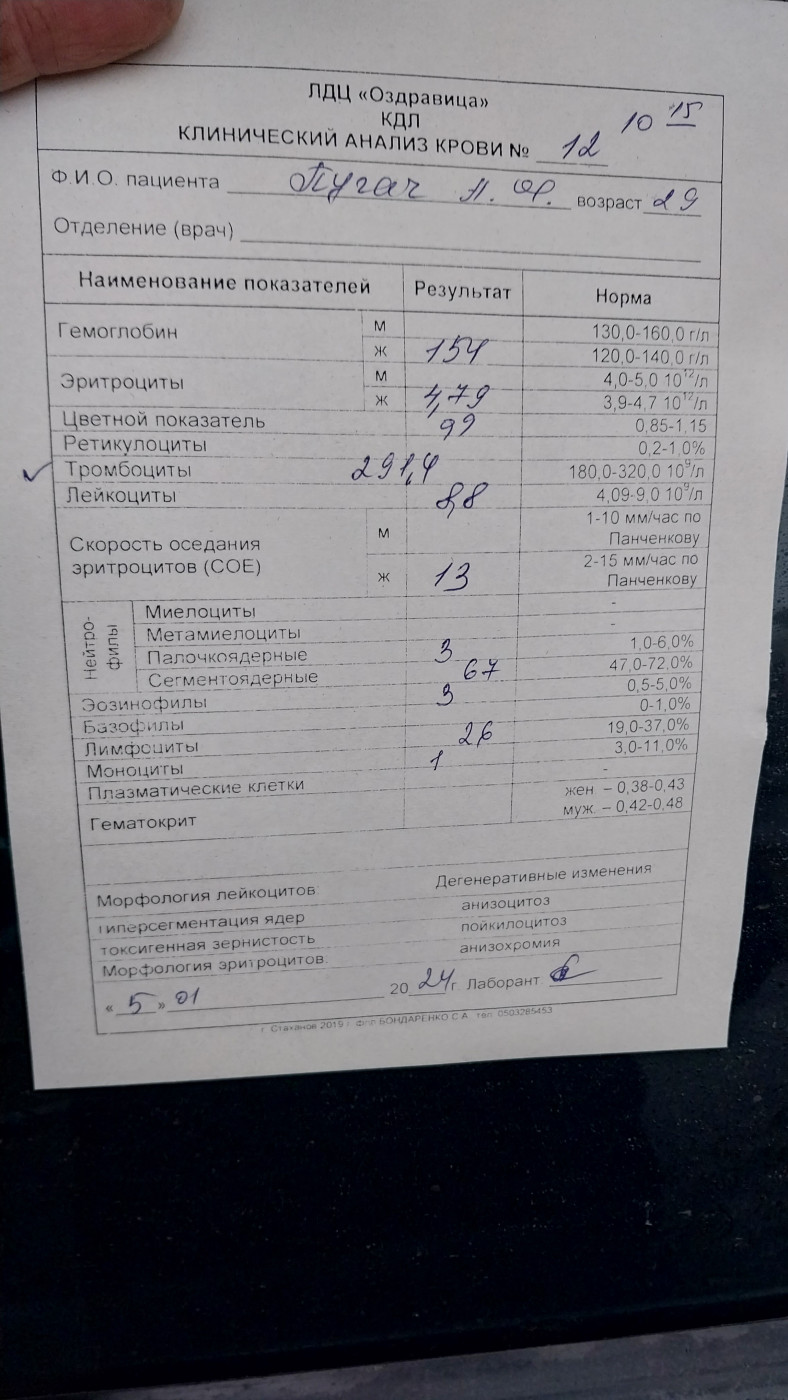 ЛДЦ «Оздравица»
КДЛ 10 15
КЛИНИЧЕСКИЙ АНАЛИЗ КРОВИ № 12
Ф.И.О. пациента Пугач возраст 29
Отделение (врач)
Наименование показателей Результат Норма
Гемоглобин М 130,0-160,0 г/л
Ж 154 120,0-140,0 г/л
Эритроциты М 4,0-5,0 10¹²/л
Ж 4,79 3,9-4,7 10¹²/л
Цветной показатель 99 0,85-1,15
Ретикулоциты 0,2-1,0%
Тромбоциты 291,4 180,0-320,0 10⁹/л
Лейкоциты 8,8 4,09-9,0 10⁹/л
Скорость оседания эритроцитов (СОЕ) М 1-10 мм/час по Панченкову
Ж 13 2-15 мм/час по Панченкову
Нейтро-филы
Миелоциты -
Метамиелоциты -
Палочкоядерные 3 1,0-6,0%
Сегментоядерные 67 47,0-72,0%
Эозинофилы 3 0,5-5,0%
Базофилы 0-1,0%
Лимфоциты 26 19,0-37,0%
Моноциты 1 3,0-11,0%
Плазматические клетки -
Гематокрит жен – 0,38-0,43
муж – 0,42-0,48
Морфология лейкоцитов: Дегенеративные изменения
гиперсегментация ядер анизоцитоз
токсигенная зернистость пойкилоцитоз
Морфология эритроцитов: анизохромия
« 5 » 01 20 24 г. Лаборант
г. Стаханов 2019 г. ФЛП БОНДАРЕНКО С.А. тел. 0503285453